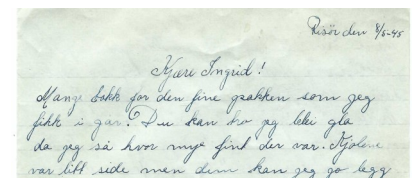 Risör den 8/5-45
Kjære Ingrid!
Mange takk for den fine pakken som jeg
fikk i går. Du kan tro jeg blei gla
da jeg så hvor mye fint der var. Kjolene
var litt side men dem kan jeg jo legg